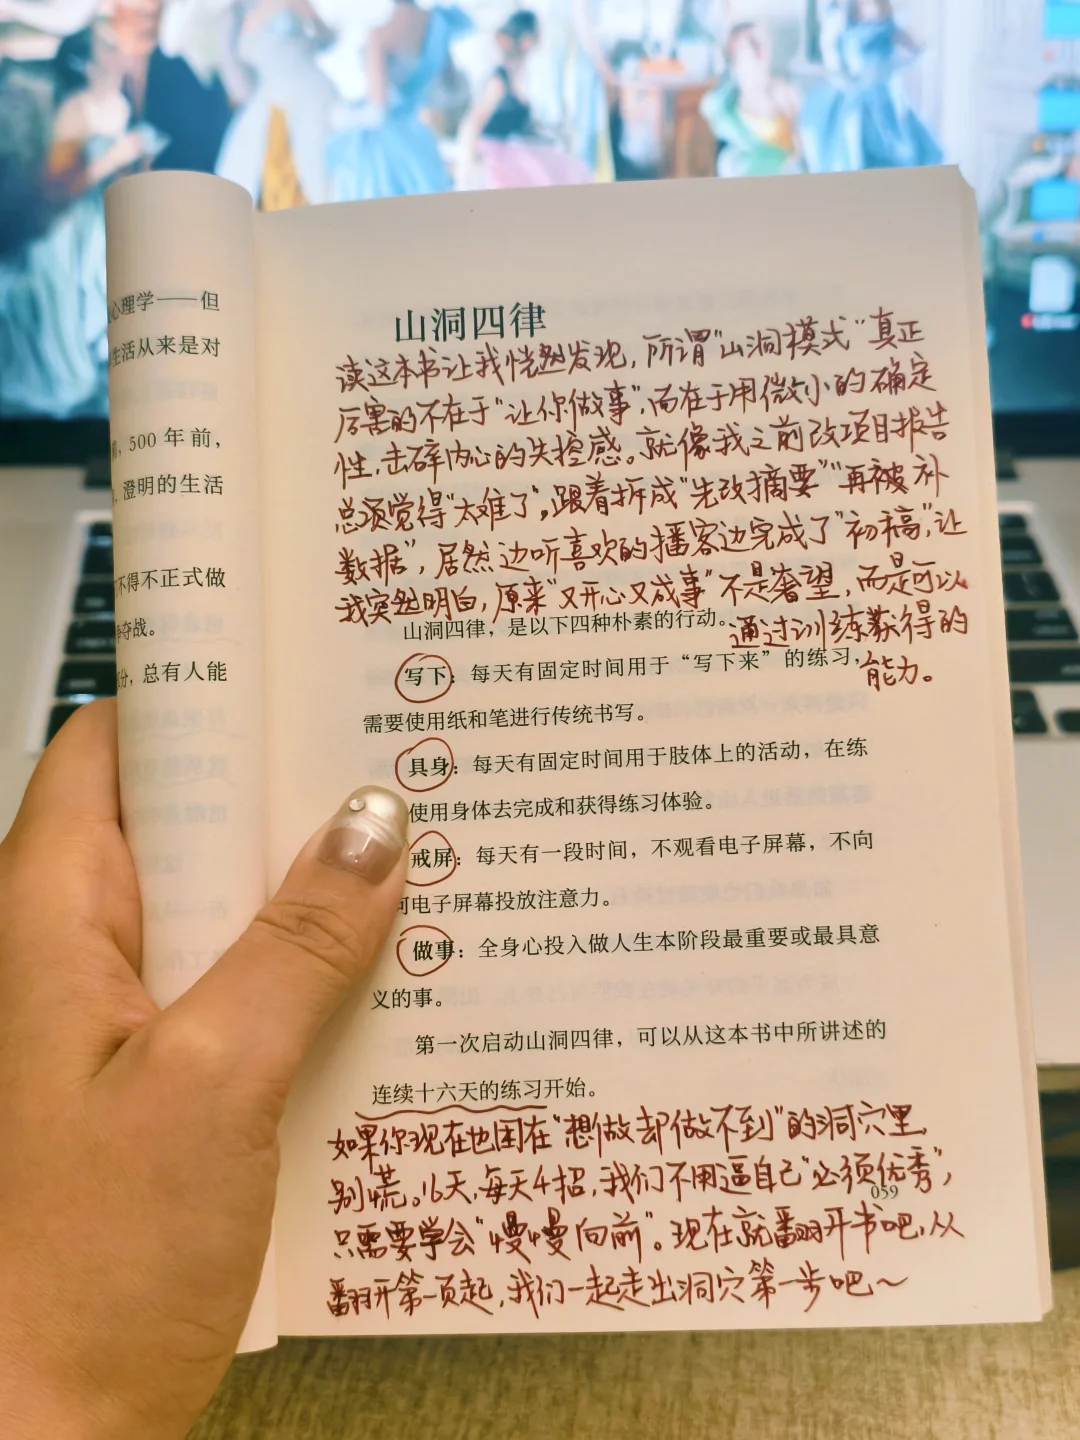 心理学——但
生活从来是对
，500 年前，
澄明的生活
不得不正式做
争夺战。
部分，总有人能
山洞四律
读这本书让我恍然发现，所谓“山洞模式”真正
厉害的不在于“让你做事”，而在于用微小的确定
性，击碎内心的失控感。就像我之前改项目报告
总须觉得“太难了”，跟着拆成“先改摘要”“再被补
数据”，居然边听喜欢的播客边完成了“初稿”，让
我突然明白，原来“又开心又成事”不是奢望，而是可以
通过训练获得的
能力。
山洞四律，是以下四种朴素的行动。
写下：每天有固定时间用于“写下来”的练习，
需要使用纸和笔进行传统书写。
具身：每天有固定时间用于肢体上的活动，在练
使用身体去完成和获得练习体验。
戒屏：每天有一段时间，不观看电子屏幕，不向
何电子屏幕投放注意力。
做事：全身心投入做人生本阶段最重要或最具意
义的事。
第一次启动山洞四律，可以从这本书中所讲述的
连续十六天的练习开始。
如果你现在也困在“想做却做不到”的洞穴里，
别慌。16天，每天4招，我们不用逼自己“必须优秀”，
059
只需要学会“慢慢向前”。现在就翻开书吧，从
翻开第一页起，我们一起走出洞穴第一步吧～